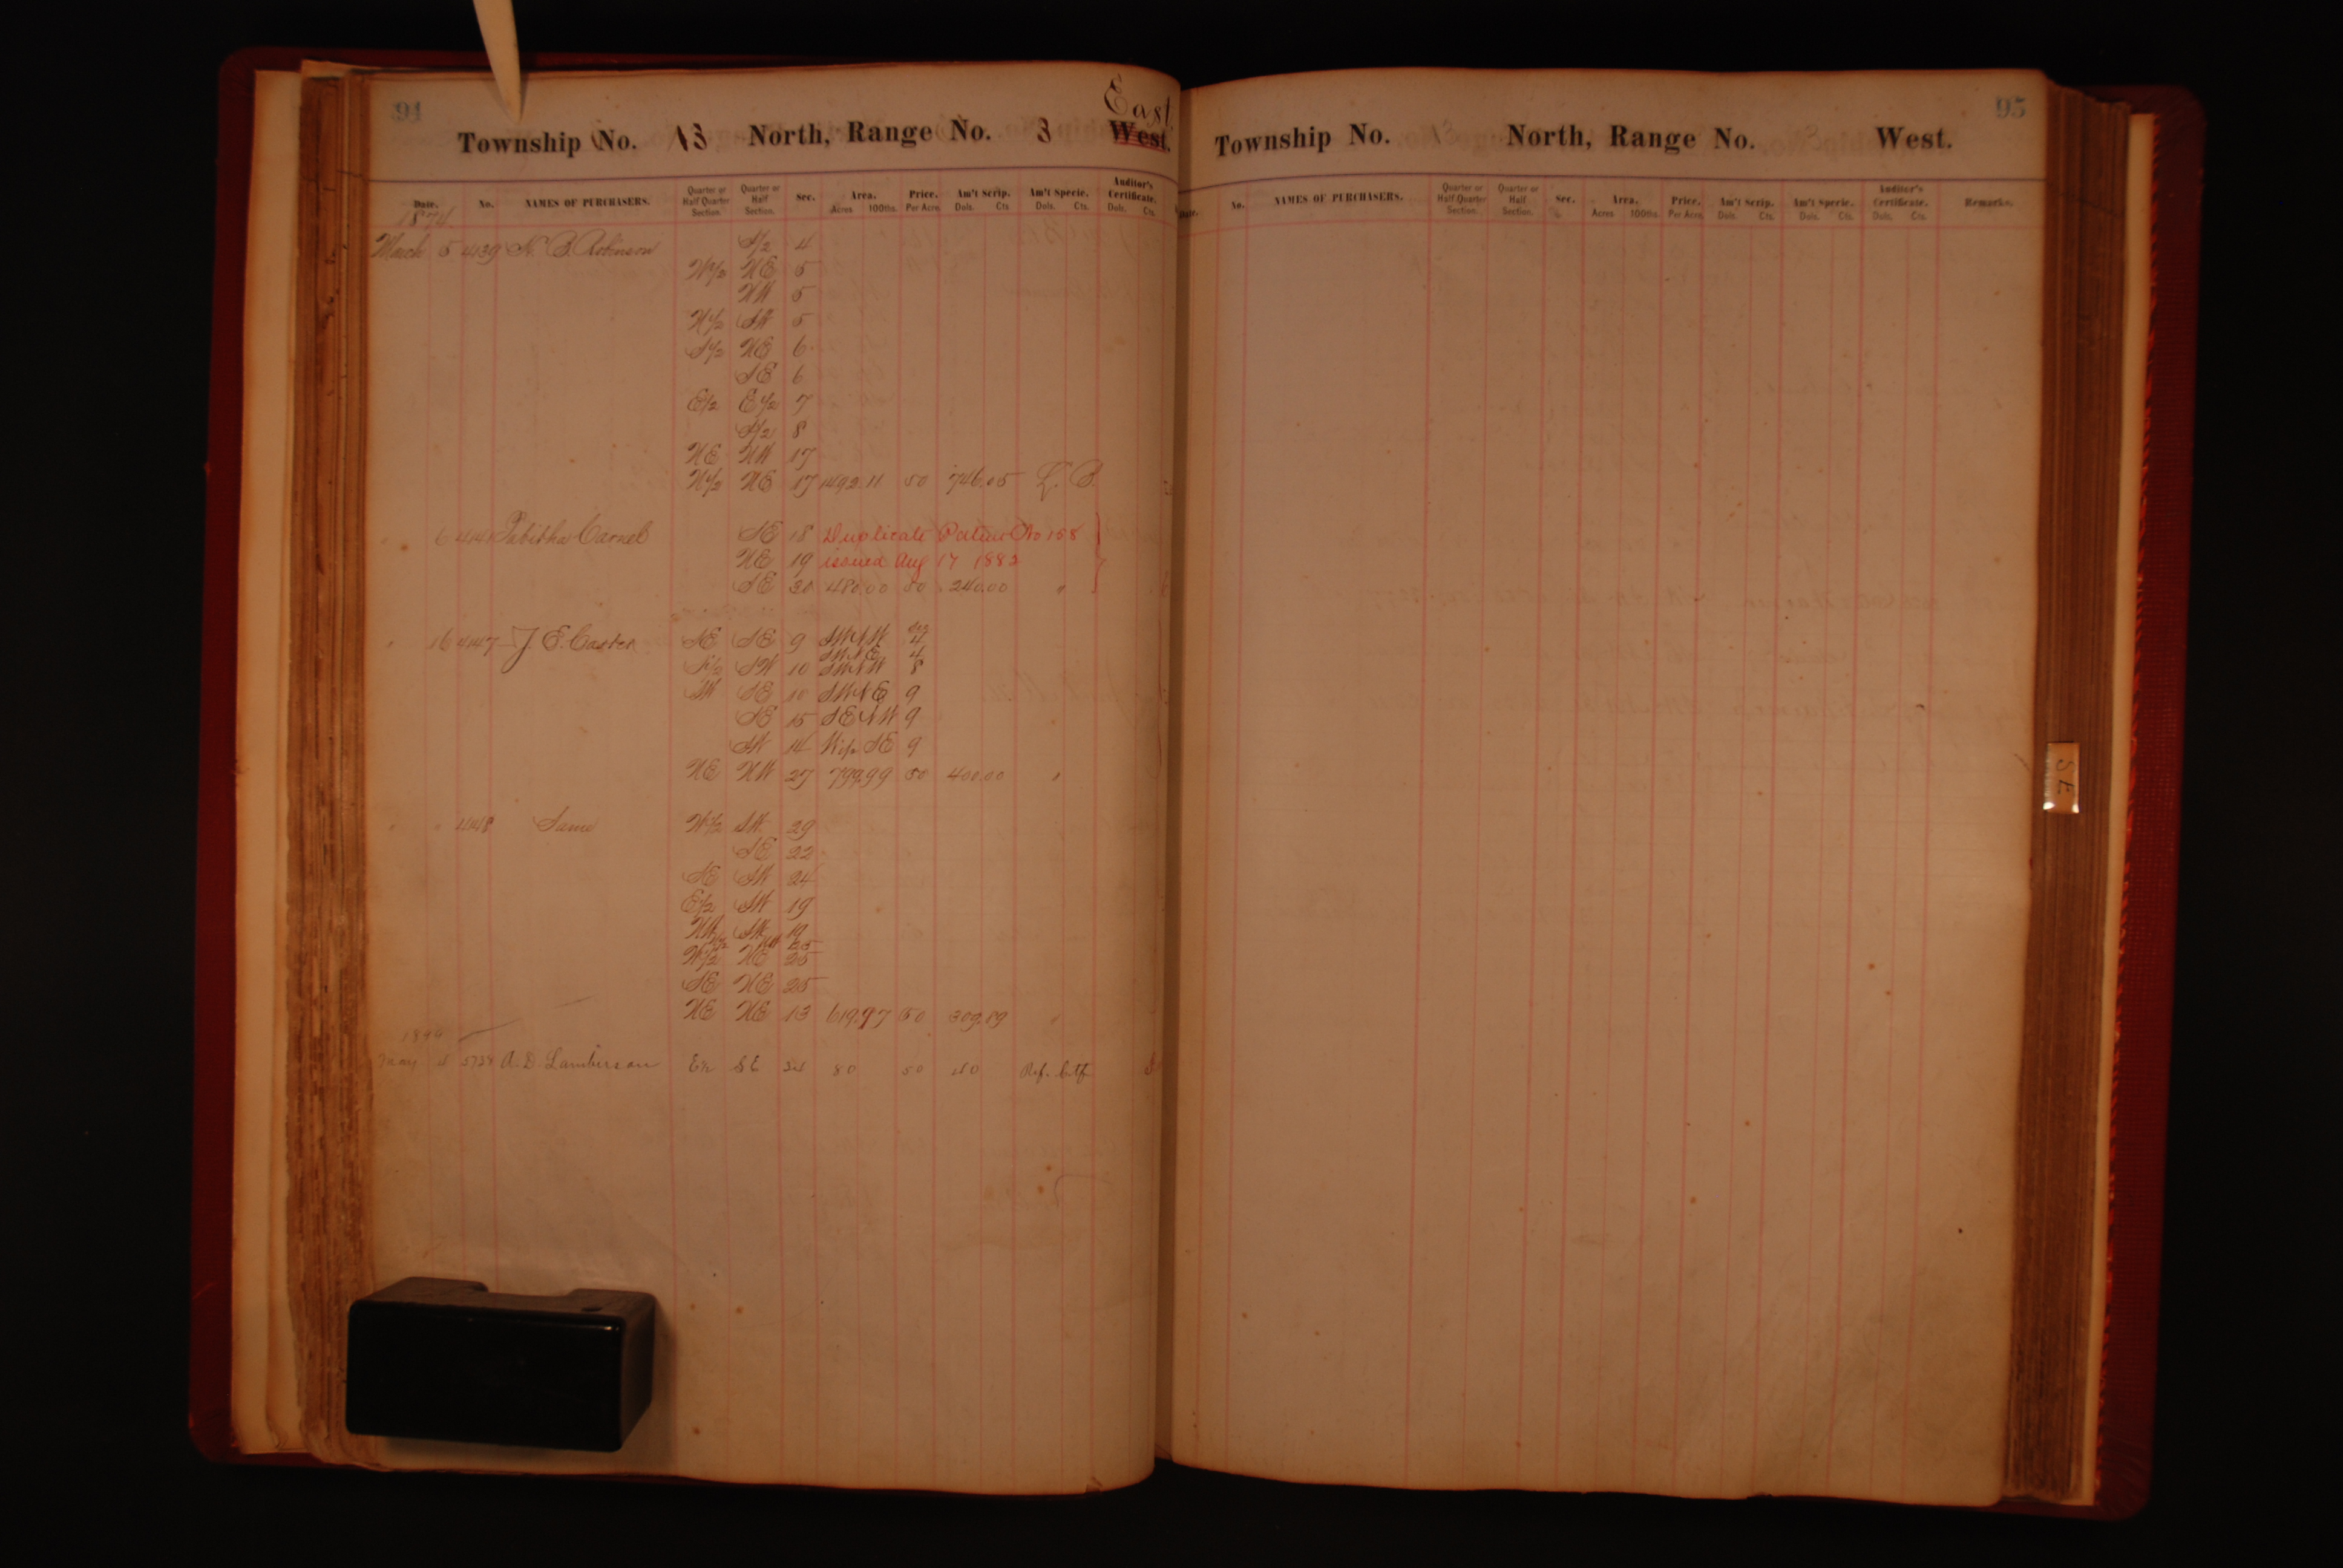 94
East
Township No. 13 North, Range No. 3 West.
Date. No. NAMES OF PURCHASERS. Quarter or Half Quarter Section. Quarter or Half Section. Sec. Area. Acres 100ths. Price. Per Acre Am't Scrip. Dols. Cts Am't Specie. Dols. Cts. Auditor's Certificate. Dols. Cts.
1874
March 5 4139 N. B. Robinson S/2 4
W/2 NE 5
NW 5
N/2 SW 5
S/2 NE 6
SE 6
E/2 E/2 7
8
NE NW 17
N/2 NE 17 1492.11 50 746.05 L. B.
" 6 4141 Tabitha Carnel SE 18 Duplicate Patent No 158
NE 19 issued Aug 17 1882
SE 30 480.00 50 240.00 "
" 16 4147 J. E. Carter SE SE 9 SW NW Sec 4
SW NE 4
S/2 SW 10 SW NW 8
SW SE 10 SW NE 9
SE 15 SE NW 9
SW 14 W/2 SE 9
NE NW 27 799.99 50 400.00 "
" " 4148 Same W/2 SW 29
SE 22
SE SW 24
E/2 SW 19
NW SW 19
NW 25
W/2 NE 25
SE NE 25
NE NE 13 619.97 50 309.89 "
May 4 A. D. Lamberson E/2 SE 34 80 50 40 Ref. Ctf
95
Township No. North, Range No. West.
Date. No. NAMES OF PURCHASERS. Quarter or Half Quarter Section. Quarter or Half Section. Sec. Area. Acres 100ths. Price. Per Acre. Am't Scrip. Dols. Cts. Am't Specie. Dols. Cts. Auditor's Certificate. Dols. Cts. Remarks.
SE